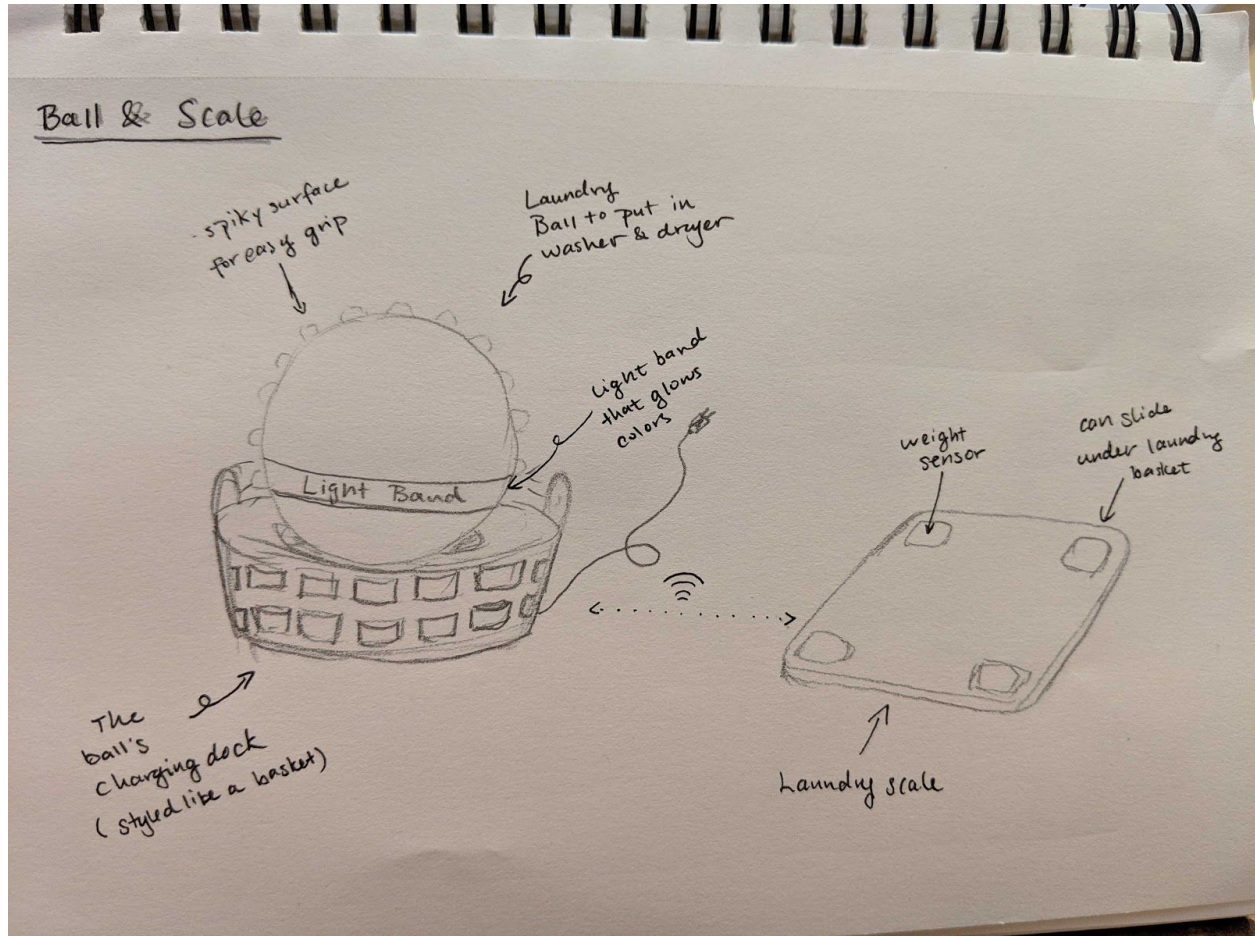 Ball & Scale
spiky surface
for easy grip
Laundry
Ball to put in
washer & drayer
Light band
that glows
colors
Light Band
weight
sensor
can slide
under laundry
basket
The
ball's
charging dock
( styled like a basket)
Laundry scale